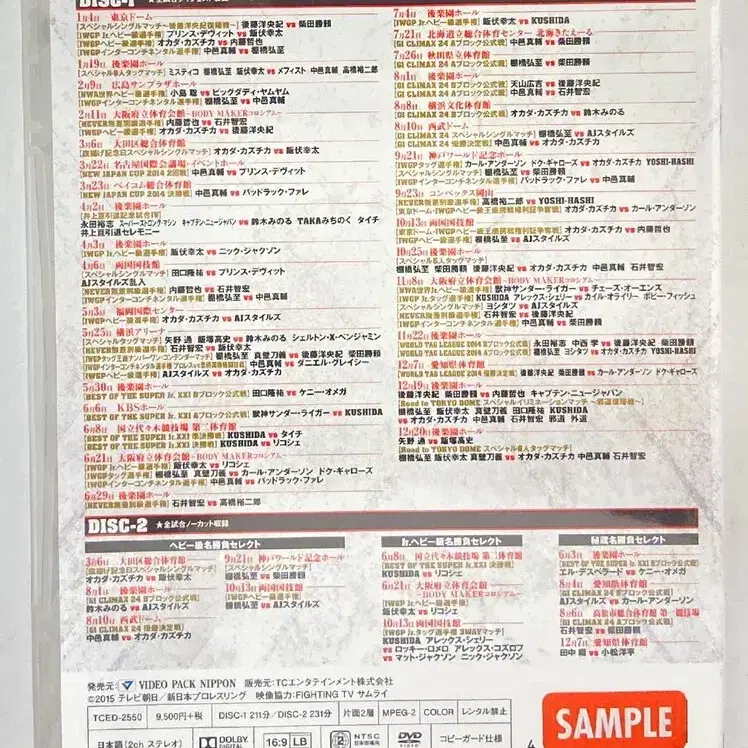 DISC-1
1月4日 東京ドーム
[スペシャルシングルマッチ~後藤洋央紀復帰戦~] 後藤洋央紀 vs 柴田勝頼
[IWGP Jr.ヘビー級選手権] プリンス・デヴィット vs 飯伏幸太
[IWGPヘビー級選手権] オカダ・カズチカ vs 内藤哲也
[IWGPインターコンチネンタル選手権] 中邑真輔 vs 棚橋弘至
1月19日 後楽園ホール
[スペシャル6人タッグマッチ] ミスティコ 棚橋弘至 飯伏幸太 vs メフィスト 中邑真輔 高橋裕二郎
2月9日 広島サンプラザホール
[NWA世界ヘビー級選手権] 小島 聡 vs ビッグダディ・ヤムヤム
[IWGPインターコンチネンタル選手権] 棚橋弘至 vs 中邑真輔
2月11日 大阪府立体育会館~BODY MAKERコロシアム~
[NEVER無差別級選手権] 内藤哲也 vs 石井智宏
[IWGPヘビー級選手権] オカダ・カズチカ vs 後藤洋央紀
3月6日 大田区総合体育館
[旗揚げ記念日スペシャルシングルマッチ] オカダ・カズチカ vs 飯伏幸太
3月22日 名古屋国際会議場・イベントホール
[NEW JAPAN CUP 2014 2回戦] 中邑真輔 vs プリンス・デヴィット
3月23日 ベイコム総合体育館
[NEW JAPAN CUP 2014 決勝戦] 中邑真輔 vs バッドラック・ファレ
4月2日 後楽園ホール
[井上亘引退記念試合IV]
永田裕志 スーパー・ストロング・マシン キャプテン・ニュージャパン vs 鈴木みのる TAKAみちのく タイチ
井上亘引退セレモニー
4月3日 後楽園ホール
[IWGP Jr.ヘビー級選手権] 飯伏幸太 vs ニック・ジャクソン
4月6日 両国国技館
[スペシャルシングルマッチ] 田口隆祐 vs プリンス・デヴィット
AJスタイルズ乱入
[NEVER無差別級選手権] 内藤哲也 vs 石井智宏
[IWGPインターコンチネンタル選手権] 棚橋弘至 vs 中邑真輔
5月3日 福岡国際センター
[IWGPヘビー級選手権] オカダ・カズチカ vs AJスタイルズ
5月25日 横浜アリーナ
[スペシャルタッグマッチ] 矢野 通 飯塚高史 vs 鈴木みのる シェルトン・X・ベンジャミン
[NEVER無差別級選手権] 石井智宏 vs 飯伏幸太
[IWGPタッグ王座ナンバーワン・コンテンダーマッチ] 棚橋弘至 真壁刀義 vs 後藤洋央紀 柴田勝頼
中邑真輔 vs ダニエル・グレイシー
[IWGPヘビー級選手権] AJスタイルズ vs オカダ・カズチカ
5月30日 後楽園ホール
[BEST OF THE SUPER Jr.XXI Aブロック公式戦] 田口隆祐 vs ケニー・オメガ
6月6日 KBSホール
[BEST OF THE SUPER Jr.XXI Aブロック公式戦] 獣神サンダー・ライガー vs KUSHIDA
6月8日 国立代々木競技場 第二体育館
[BEST OF THE SUPER Jr.XXI 準決勝戦] KUSHIDA vs タイチ
[BEST OF THE SUPER Jr.XXI 決勝戦] KUSHIDA vs リコシェ
6月21日 大阪府立体育会館~BODY MAKERコロシアム~
[IWGP Jr.ヘビー級選手権] 飯伏幸太 vs リコシェ
[IWGPタッグ選手権] 棚橋弘至 真壁刀義 vs カール・アンダーソン ドク・ギャローズ
[IWGPインターコンチネンタル選手権] 中邑真輔 vs バッドラック・ファレ
6月29日 後楽園ホール
[NEVER無差別級選手権] 石井智宏 vs 高橋裕二郎
7月4日 後楽園ホール
[IWGP Jr.ヘビー級選手権] 飯伏幸太 vs KUSHIDA
7月21日 北海道立総合体育センター 北海きたえーる
[G1 CLIMAX 24 Aブロック公式戦] 中邑真輔 vs 柴田勝頼
7月26日 秋田県立体育館
[G1 CLIMAX 24 Aブロック公式戦] 棚橋弘至 vs 柴田勝頼
8月1日 後楽園ホール
[G1 CLIMAX 24 Bブロック公式戦] 天山広吉 vs 後藤洋央紀
[G1 CLIMAX 24 Aブロック公式戦] 中邑真輔 vs 石井智宏
8月8日 横浜文化体育館
[G1 CLIMAX 24 Bブロック公式戦] オカダ・カズチカ vs 鈴木みのる
8月10日 西武ドーム
[G1 CLIMAX 24 スペシャルシングルマッチ] 棚橋弘至 vs AJスタイルズ
[G1 CLIMAX 24 優勝決定戦] 中邑真輔 vs オカダ・カズチカ
9月21日 神戸ワールド記念ホール
[IWGPタッグ選手権] カール・アンダーソン ドク・ギャローズ vs オカダ・カズチカ YOSHI-HASHI
[スペシャルシングルマッチ] 棚橋弘至 vs 柴田勝頼
[IWGPインターコンチネンタル選手権] バッドラック・ファレ vs 中邑真輔
9月23日 コンベックス岡山
[NEVER無差別級選手権] 高橋裕二郎 vs YOSHI-HASHI
[東京ドーム・IWGPヘビー級王座挑戦権利証争奪戦] オカダ・カズチカ vs カール・アンダーソン
10月13日 両国国技館
[東京ドーム・IWGPヘビー級王座挑戦権利証争奪戦] オカダ・カズチカ vs 内藤哲也
[IWGPヘビー級選手権] 棚橋弘至 vs AJスタイルズ
10月25日 後楽園ホール
[スペシャル6人タッグマッチ]
棚橋弘至 柴田勝頼 後藤洋央紀 vs オカダ・カズチカ 中邑真輔 石井智宏
11月8日 大阪府立体育会館~BODY MAKERコロシアム~
[NWA世界Jr.ヘビー級選手権] 獣神サンダー・ライガー vs チェーズ・オーエンズ
[IWGP Jr.タッグ選手権] KUSHIDA アレックス・シェリー vs カイル・オライリー ボビー・フィッシュ
[スペシャルシングルマッチ] ヨシタツ vs AJスタイルズ
[NEVER無差別級選手権] 石井智宏 vs 後藤洋央紀
[IWGPインターコンチネンタル選手権] 中邑真輔 vs 柴田勝頼
11月22日 後楽園ホール
[WORLD TAG LEAGUE 2014 Bブロック公式戦] 永田裕志 中西 学 vs 後藤洋央紀 柴田勝頼
[WORLD TAG LEAGUE 2014 Aブロック公式戦] 棚橋弘至 ヨシタツ vs オカダ・カズチカ YOSHI-HASHI
12月7日 愛知県体育館
[WORLD TAG LEAGUE 2014 優勝決定戦] 後藤洋央紀 柴田勝頼 vs カール・アンダーソン ドク・ギャローズ
12月19日 後楽園ホール
後藤洋央紀 柴田勝頼 vs 内藤哲也 キャプテン・ニュージャパン
[Road to TOKYO DOME スペシャルイリミネーションマッチ ~邪道復帰戦~]
棚橋弘至 飯伏幸太 真壁刀義 田口隆祐 KUSHIDA
vs オカダ・カズチカ 中邑真輔 石井智宏 邪道 外道
12月20日 後楽園ホール
矢野 通 vs 飯塚高史
[Road to TOKYO DOME スペシャル6人タッグマッチ]
棚橋弘至 飯伏幸太 真壁刀義 vs オカダ・カズチカ 中邑真輔 石井智宏
DISC-2 ★全試合ノーカット収録
ヘビー級名勝負セレクト
3月6日 大田区総合体育館
[旗揚げ記念日スペシャルシングルマッチ]
オカダ・カズチカ vs 飯伏幸太
8月1日 後楽園ホール
[G1 CLIMAX 24 Bブロック公式戦]
鈴木みのる vs AJスタイルズ
8月10日 西武ドーム
[G1 CLIMAX 24 優勝決定戦]
中邑真輔 vs オカダ・カズチカ
9月21日 神戸ワールド記念ホール
[スペシャルシングルマッチ]
棚橋弘至 vs 柴田勝頼
10月13日 両国国技館
[IWGPヘビー級選手権]
棚橋弘至 vs AJスタイルズ
Jr.ヘビー級名勝負セレクト
6月8日 国立代々木競技場 第二体育館
[BEST OF THE SUPER Jr.XXI 決勝戦]
KUSHIDA vs リコシェ
6月21日 大阪府立体育会館
~BODY MAKERコロシアム~
[IWGP Jr.ヘビー級選手権]
飯伏幸太 vs リコシェ
10月13日 両国国技館
[IWGP Jr.タッグ選手権 3WAYマッチ]
KUSHIDA アレックス・シェリー
vs ロッキー・ロメロ アレックス・コズロフ
vs マット・ジャクソン ニック・ジャクソン
秘蔵名勝負セレクト
6月3日 後楽園ホール
[BEST OF THE SUPER Jr.XXI Bブロック公式戦]
エル・デスペラード vs ケニー・オメガ
8月4日 愛知県体育館
[G1 CLIMAX 24 Bブロック公式戦]
AJスタイルズ vs カール・アンダーソン
8月6日 高松市総合体育館 第一競技場
石井智宏 vs 柴田勝頼
12月7日 愛知県体育館
田中 翔 vs 小松洋平
発売元: VIDEO PACK NIPPON 販売元:TCエンタテインメント株式会社
©2015 テレビ朝日/新日本プロレスリング 映像協力:FIGHTING TV サムライ
TCED-2550 9,500円+税 DISC-1 211分/DISC-2 231分 片面2層 MPEG-2 COLOR レンタル禁止
日本語(2ch ステレオ) DOLBY DIGITAL 16:9 LB 2 NTSC 日本市場向 DVD VIDEO コピーガード仕様
SAMPLE